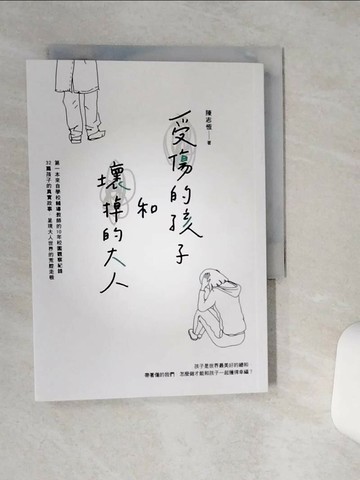 陳志恆 著
受傷的孩子
和
壞掉的大人
第一本來自學校輔導教師的10年校園觀察紀錄
32篇孩子的真實故事,呈現大人世界的荒腔走板
孩子是世界最美好的禮物
帶著傷的我們,怎麼做才能和孩子一起獲得幸福?